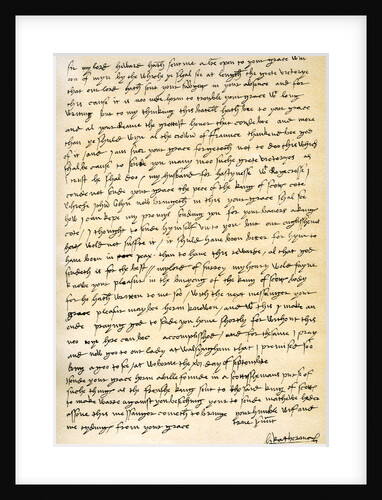 Sir my lord howard hath sent me a lre open to your grace within
oon of myn by the whiche ye shal see at length the grete victorye
that our lord hath sent your subgetts in your absence and for
this cause it is noo nede herin to trouble your grace with long
writing but to my thinking this batell hath bee to your grace
and al your reame the grettest honor that coude bee and more
than ye shuld wyn al the crown of fraunce thanked bee god
of it / and I am suer your grace forgetteth not to doo this which
shal be cause to sende you many moo suche grete victoryes as
I trust he shal doo / my husband for hastynesse with Rogecrosse I
coude not sende your grace the pece of the king of scotts cote
whiche John Glyn now bringeth in this your grace shal see
how I can kepe my promys sending you for your baners a king
cote / I thought to sende hymself unto you but our englisshmens
herts wold not suffre it / it shuld have been better for hym to
have been in peax than to have this rewarde / al that god
sendeth is for the best / my lord of surrey my henry wold fayne
knowe your pleasur in the burying of the king of scotts body
for he hath writen to me soo / with the next messanger your
grace pleasur may bee herin knowen / and with this I make an
ende praying god to sende you home shortly for without this
noo joye here can bee accomplisshed / and for the same I pray
and now goo to our lady at walsyngham that I promised soo
long agoo to see / at woborne the xvj day of septembre
I sende your grace herin a bille founde in a scottisshemans purse of
suche things as the frenshe king sent to the said king of scotts
to make warre against you beseching your to sende mathewe hider
assone this messanger cometh to bringe me tydings from your grace
your humble wif and
true servant
Katherina